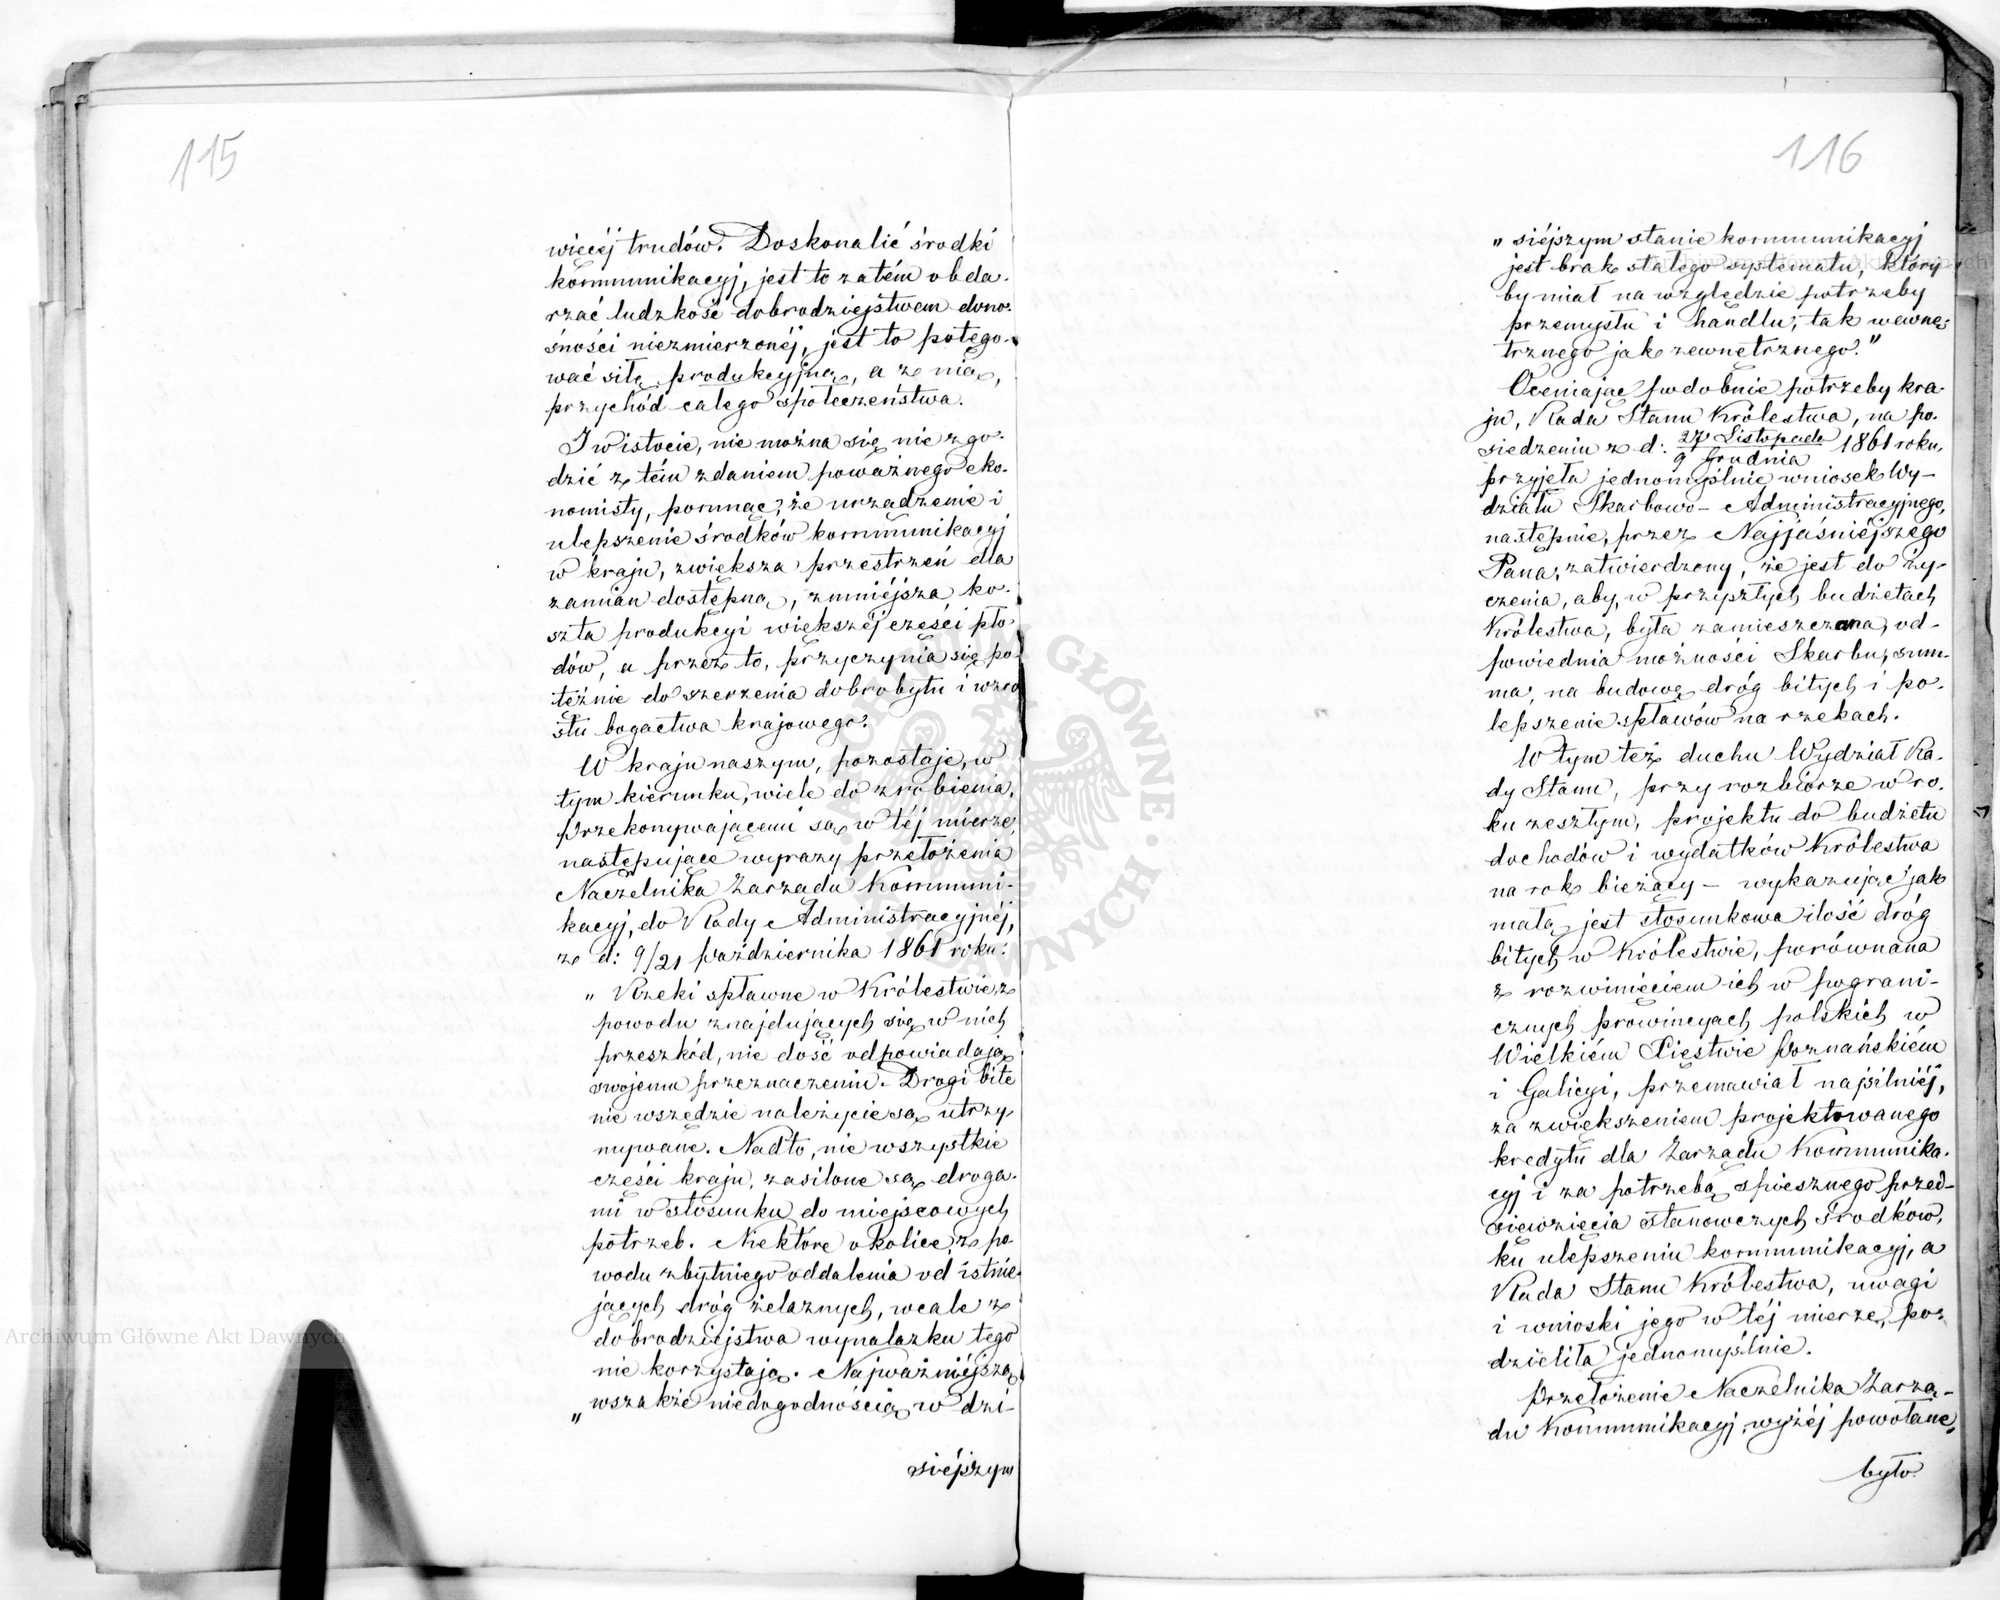 115
więcéj trudów. Doskonalić środki
kommunikacyj, jest to zatém obda-
rzać ludzkość dobrodziejstwem dono-
śności niezmierzonéj, jest to potęgo-
wać siłę produkcyjną, a z nią,
przychód całego społeczeństwa.
I w istocie, nie można się nie zgo-
dzić z tém zdaniem poważnego eko-
nomisty, pomnąc, że urządzenie i
ulepszenie środków kommunikacyj
w kraju, zwiększa przestrzeń dla
zamian dostępną, zmniéjsza ko-
szta produkcyi większéj części pło-
dów, a przez to, przyczynia się po-
tężnie do szerzenia dobrobytu i wzro
stu bogactwa krajowego.
W kraju naszym, pozostaje, w
tym kierunku, wiele do zrobienia.
Przekonywającemi są w téj mierze,
następujące wyrazy przełożenia
Naczelnika Zarządu Kommuni-
kacyj, do Rady Administracyjnéj,
z d: 9/21 Października 1861 roku:
„ Rzeki spławne w Królestwie, z
powodu znajdujących się w nich
przeszkód, nie dość odpowiadają
swojemu przeznaczeniu. Drogi bite
nie wszędzie należycie są utrzy
mywane. Nadto, nie wszystkie
części kraju, zasilone są droga-
mi w stosunku do miejscowych
potrzeb. Niektóre okolice, z po
wodu zbytniego oddalenia od istnie-
jących dróg żelaznych, wcale z
dobrodziejstwa wynalazku tego
nie korzystają. Najważniéjszą
„ wszakże niedogodnością w dzi-
siéjszym
116
„ siéjszym stanie kommunikacyj
jest brak stałego systematu, który
by miał na względzie potrzeby
przemysłu i handlu, tak wewnę-
trznego jak zewnętrznego."
Oceniając podobnie potrzeby kra-
ju, Rada Stanu Królestwa, na po-
siedzeniu z d: 27 Listopada 1861 roku,
9 Grudnia
przyjęła jednomyślnie wniosek Wy-
działu Skarbowo-Administracyjnego,
następnie, przez Najjaśniéjszego
Pana, zatwierdzony, że jest do ży-
czenia, aby, w przyszłych budżetach
Królestwa, była zamieszczana, od-
powiednia możności Skarbu, sum-
ma, na budowę dróg bitych i po-
lepszenie spławów na rzekach.
W tym też duchu Wydział Ra-
dy Stanu, przy rozbiorze w ro-
ku zeszłym, projektu do budżetu
dochodów i wydatków Królestwa
na rok bieżący – wykazując jak
małą jest stosunkowa ilość dróg
bitych w Królestwie, porównana
z rozwinięciem ich w pograni-
cznych prowincyach polskich w
Wielkiém Xięstwie Poznańskiém
i Galicyi, przemawiał najsilniéj,
za zwiększeniem projektowanego
kredytu dla Zarządu Kommunika-
cyj i za potrzebą spiesznego przed-
siewzięcia stanowczych środków,
ku ulepszeniu kommunikacyj, a
Rada Stanu Królestwa, uwagi
i wnioski jego w téj mierze, po-
dzieliła jednomyślnie.
Przełożenie Naczelnika Zarzą-
du Kommunikacyj wyżéj powołane,
było
Archiwum Główne Akt Dawnych
Archiwum Główne Akt Dawnych